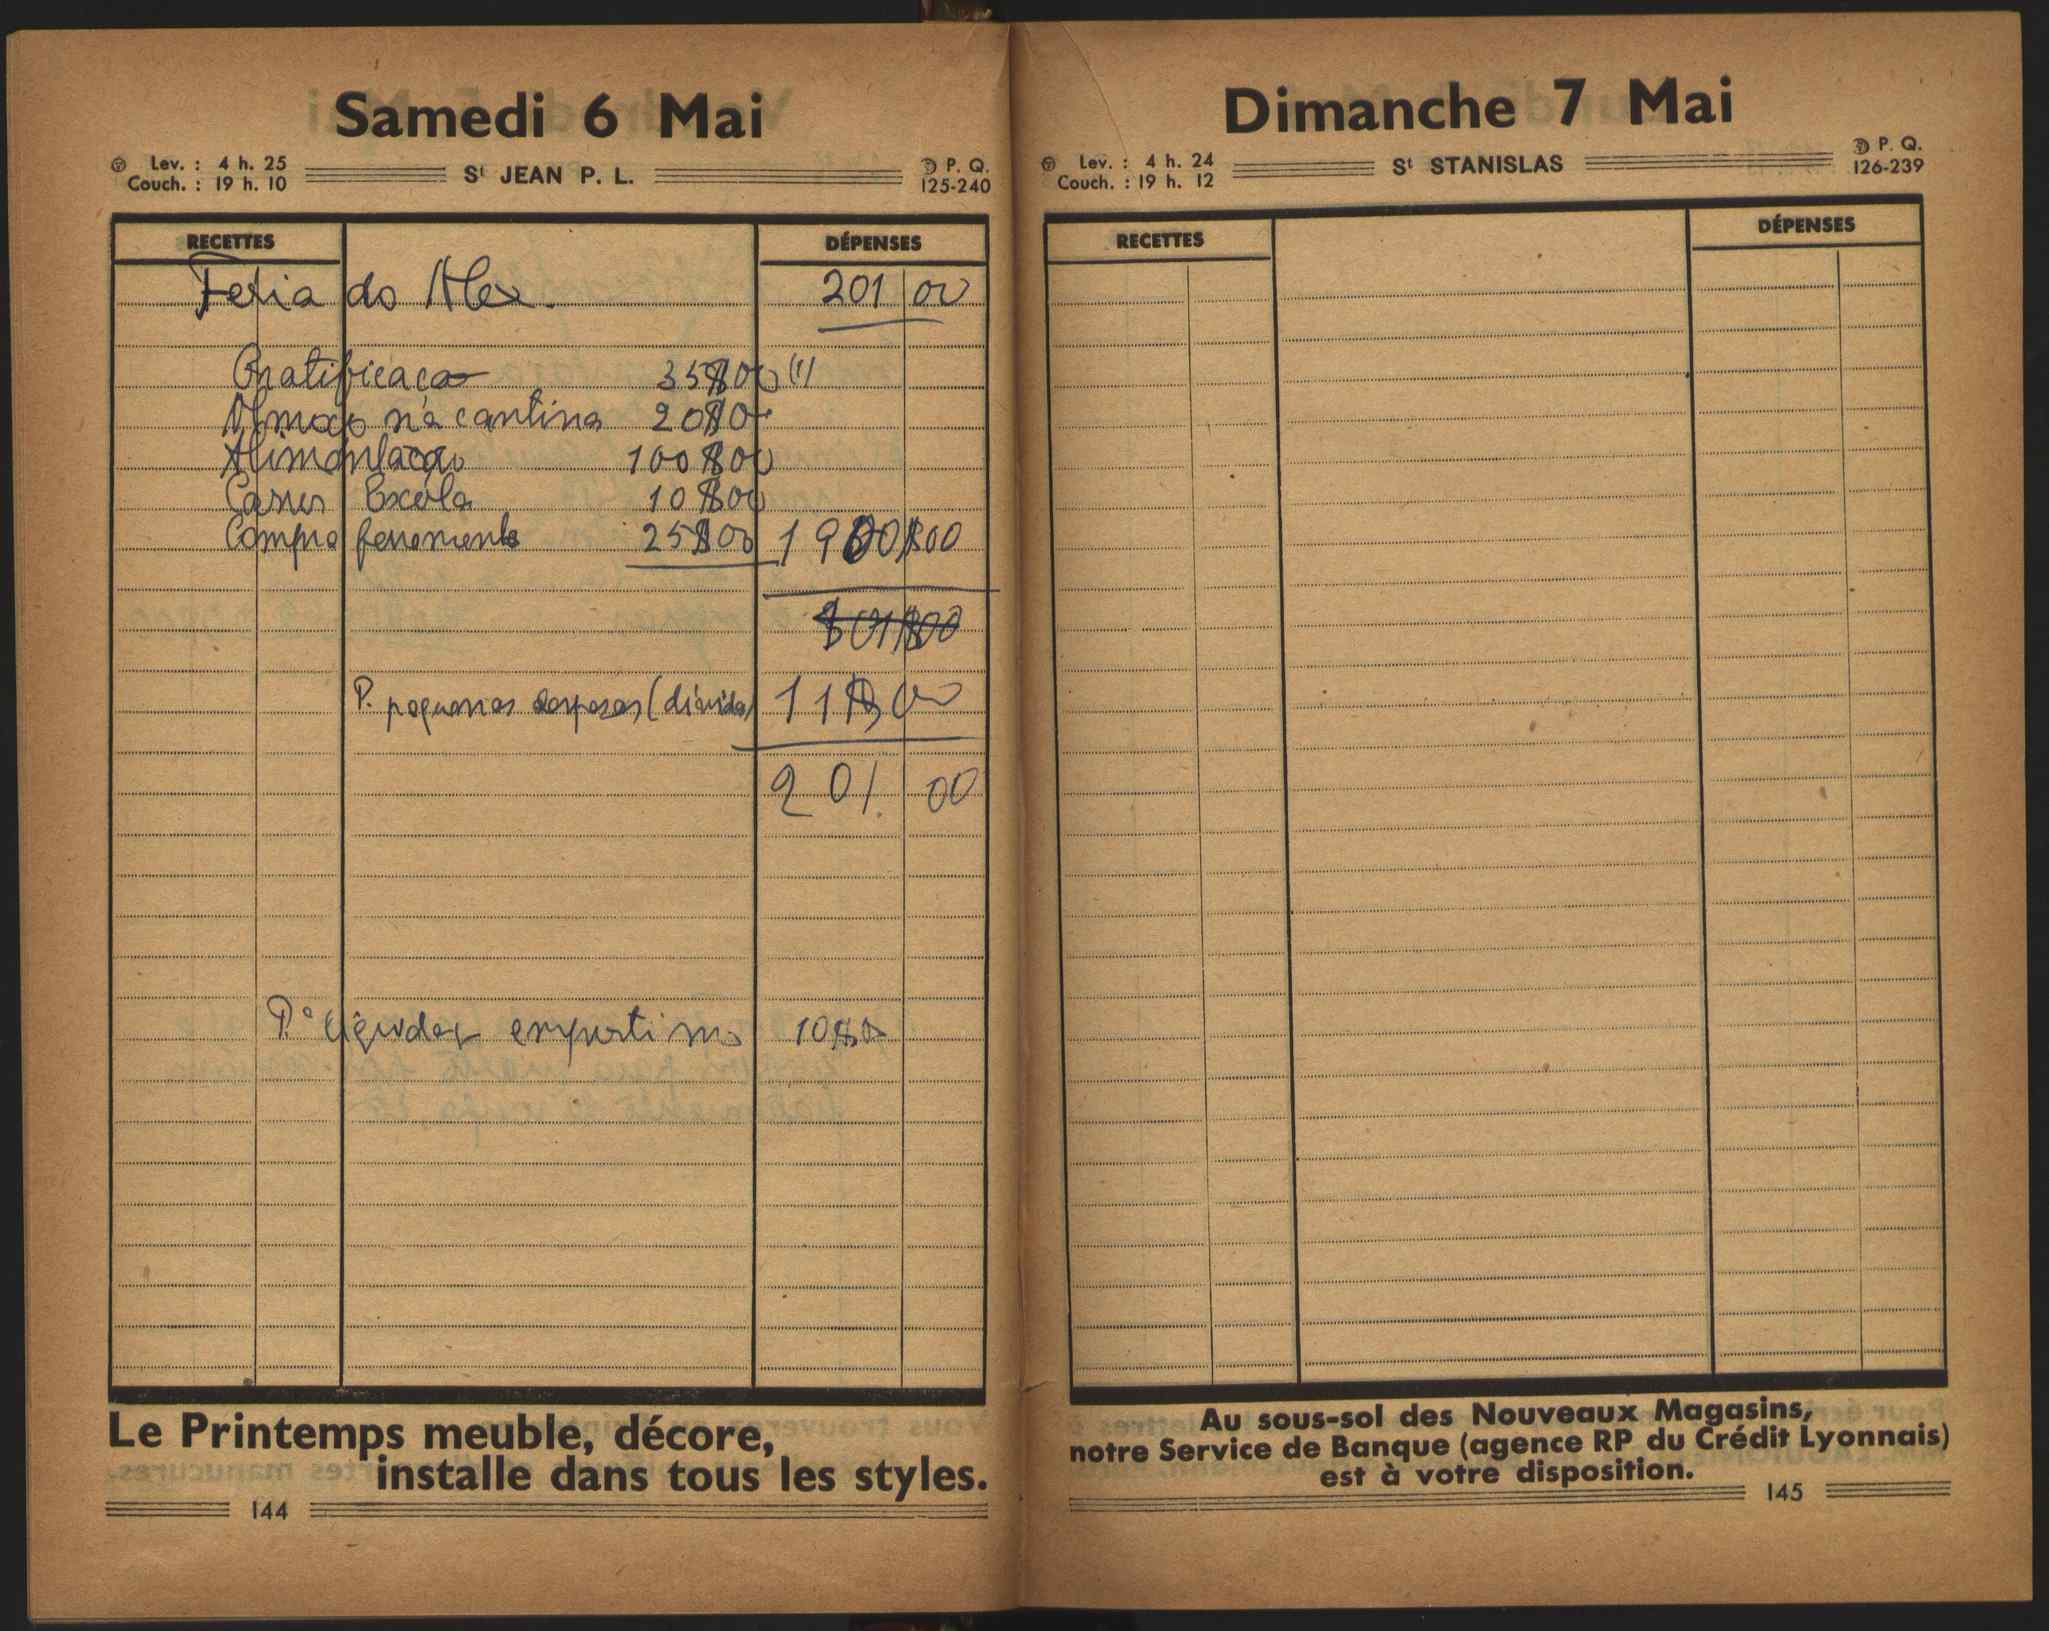 Samedi 6 Mai
Lev. : 4 h. 25
Couch. : 19 h. 10
St JEAN P. L.
P. Q.
125-240
RECETTES
DÉPENSES
Feria do Alex. 201 00
Gratificação 35$00 (1)
Almoço na cantina 20$0
Alimentação 100$00
Escola 10$00
Compra ferramenta 25$00 190$00
P. pequenas despesas (dívida) 11$00
201. 00
P.ª 10$0
Le Printemps meuble, décore,
installe dans tous les styles.
144
Dimanche 7 Mai
Lev. : 4 h. 24
Couch. : 19 h. 12
St STANISLAS
P. Q.
126-239
RECETTES
DÉPENSES
Au sous-sol des Nouveaux Magasins,
notre Service de Banque (agence RP du Crédit Lyonnais)
est à votre disposition.
145